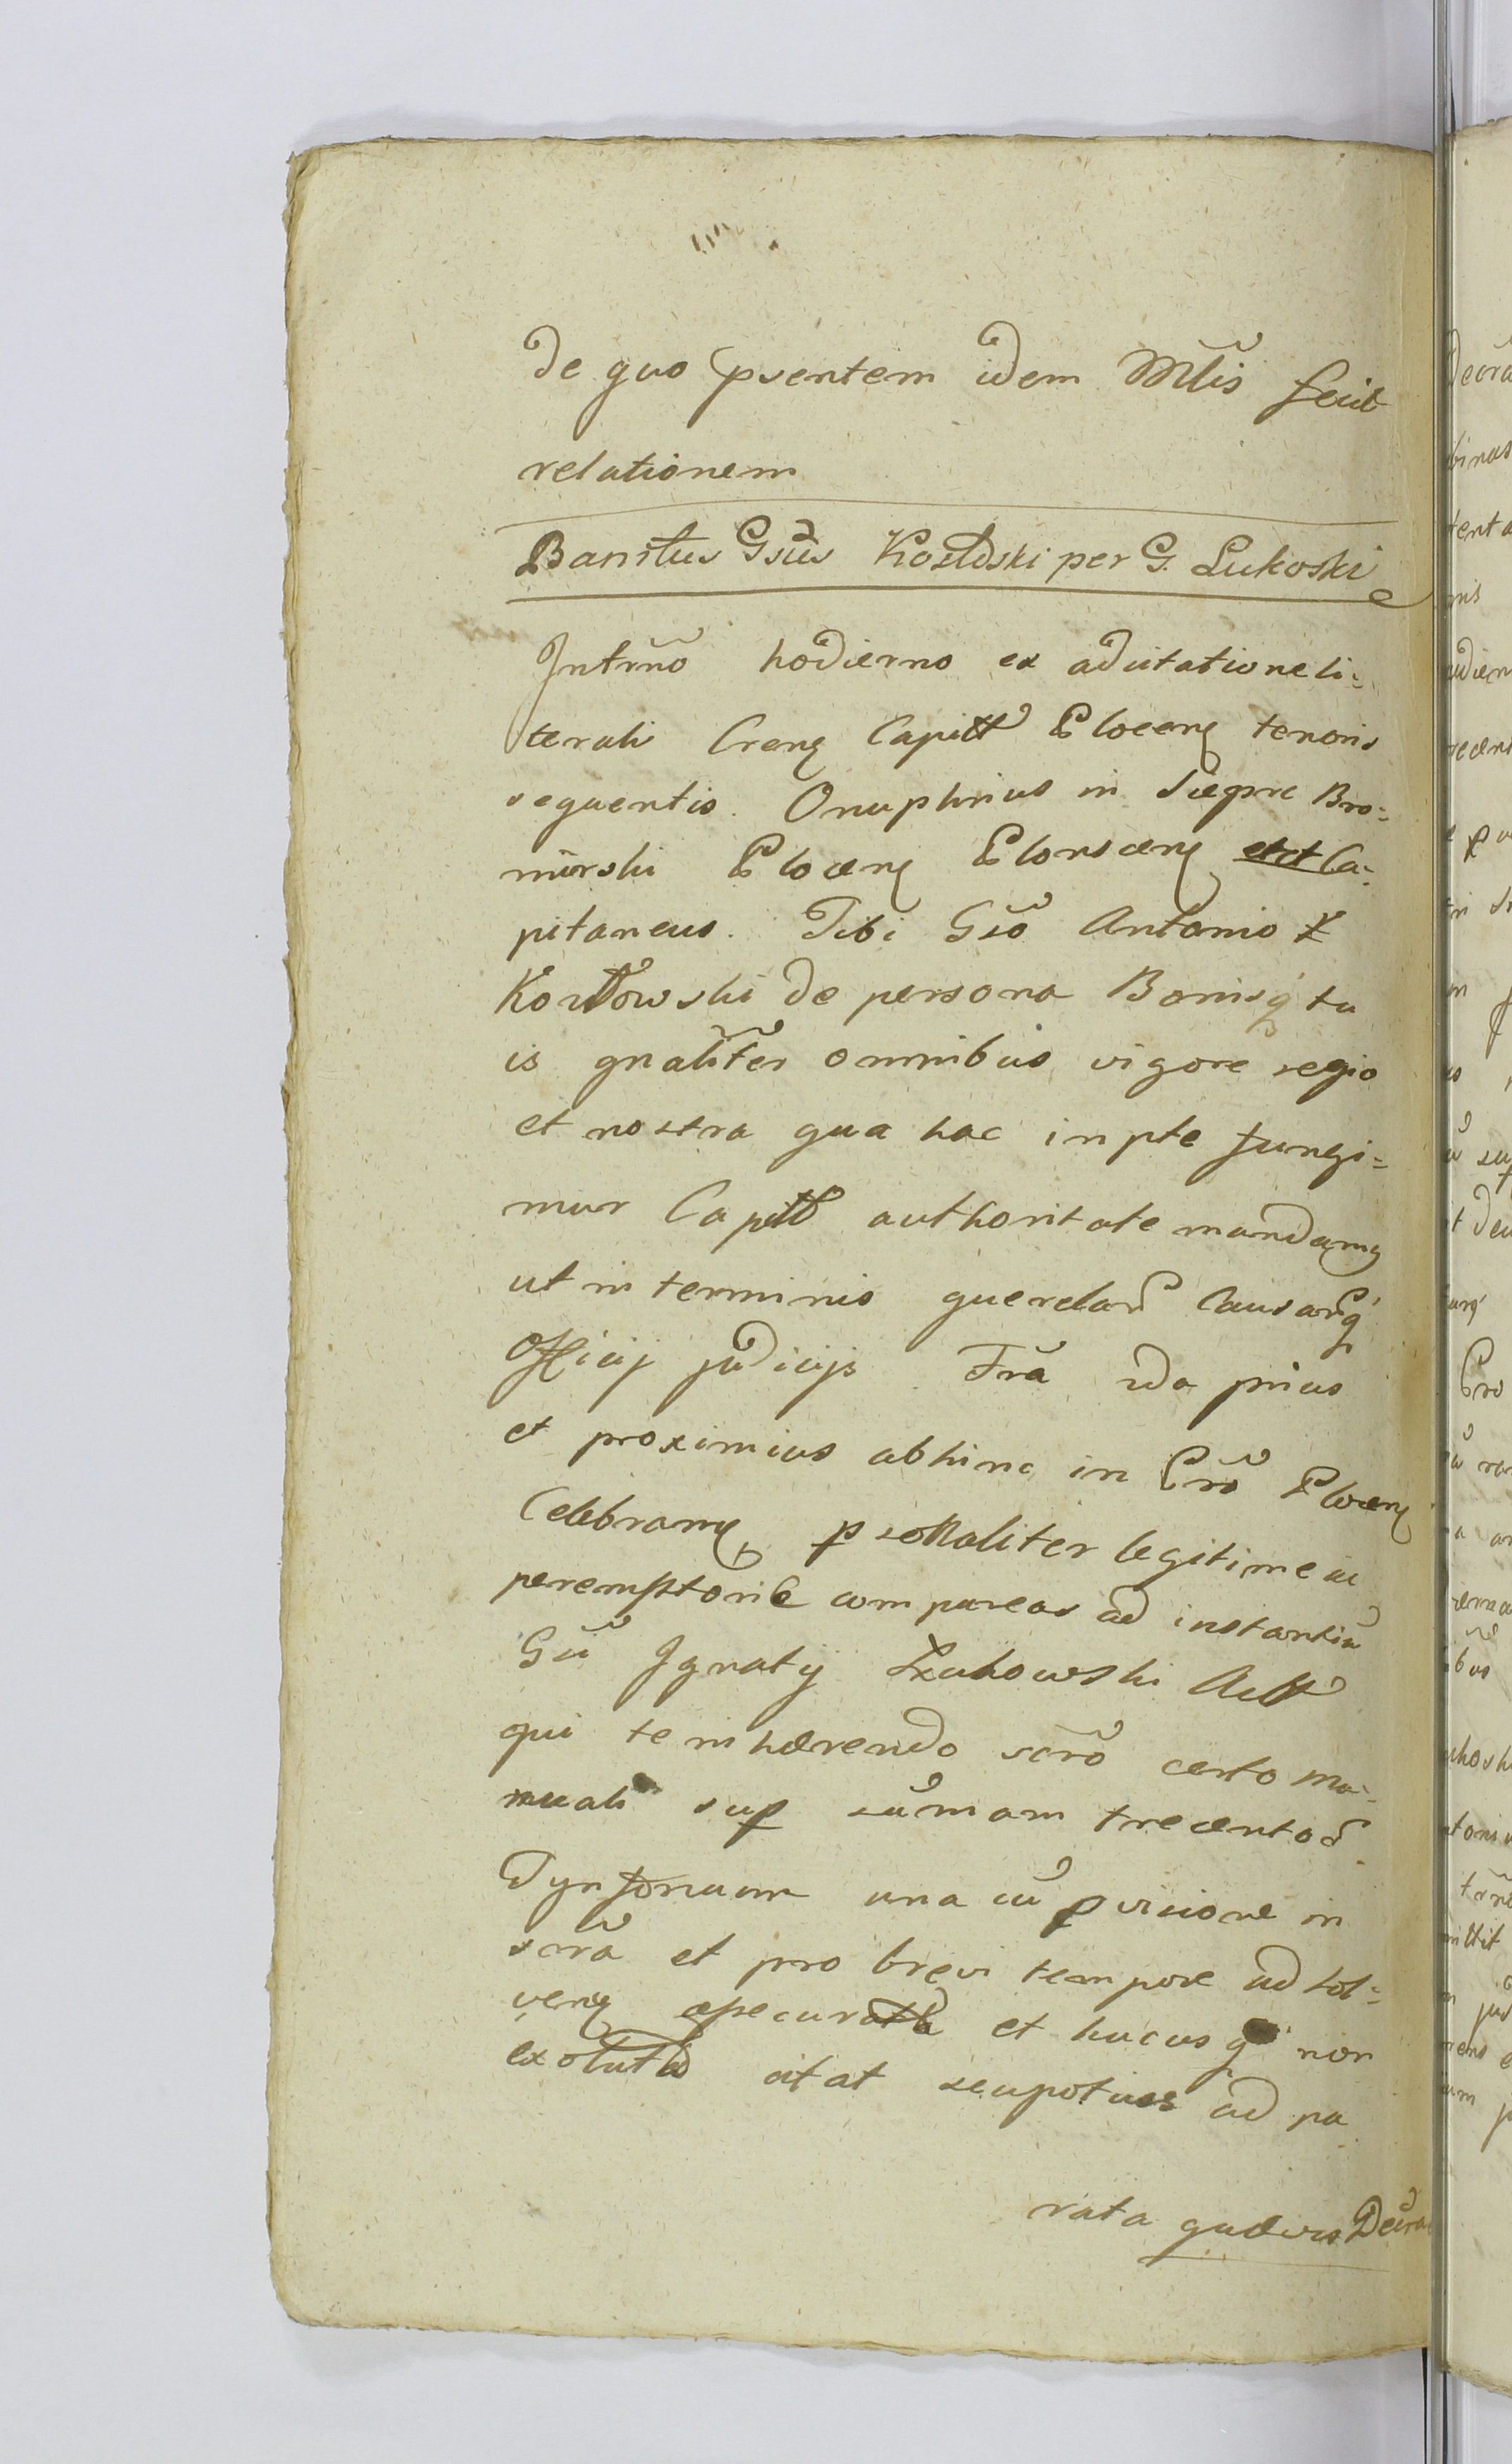 De quo psentem idem Mlis fecit
relationem
Banitus Gsus Kozłoski per G. Lukoski
In trno hodierno ex adcitatione li-
terali Crens Capitt Plocens tenoris
sequentis. Onuphrius in Siepre Bro-
mirski Plocens Plonscens etct Ca-
pitaneus. Tibi Gso Antonio
Kozłłowski de persona Bonisq tu
is gnaliter omnibus vigore regio
et nostra qua hac in pte fungi=
mur Capitt authoritate mandamus
ut in terminis querelar Causarq
Officij judicijs Fra 2da prius
et proximius abhinc in Cro Plocens
Celebrans psonaliter legitime ac
peremptorie compareas ad instantiu
Gsi Ignatij Łukowski Actt
qui te inhærendo scro certo ma-
nuali sup sumam trecentor
Tynfonum una cu pvisione in
scra et pro brevi tempore ad sol-
vens assecurata et hucusq non
exoluta citat seu potius ad pa
rata quævis Decra